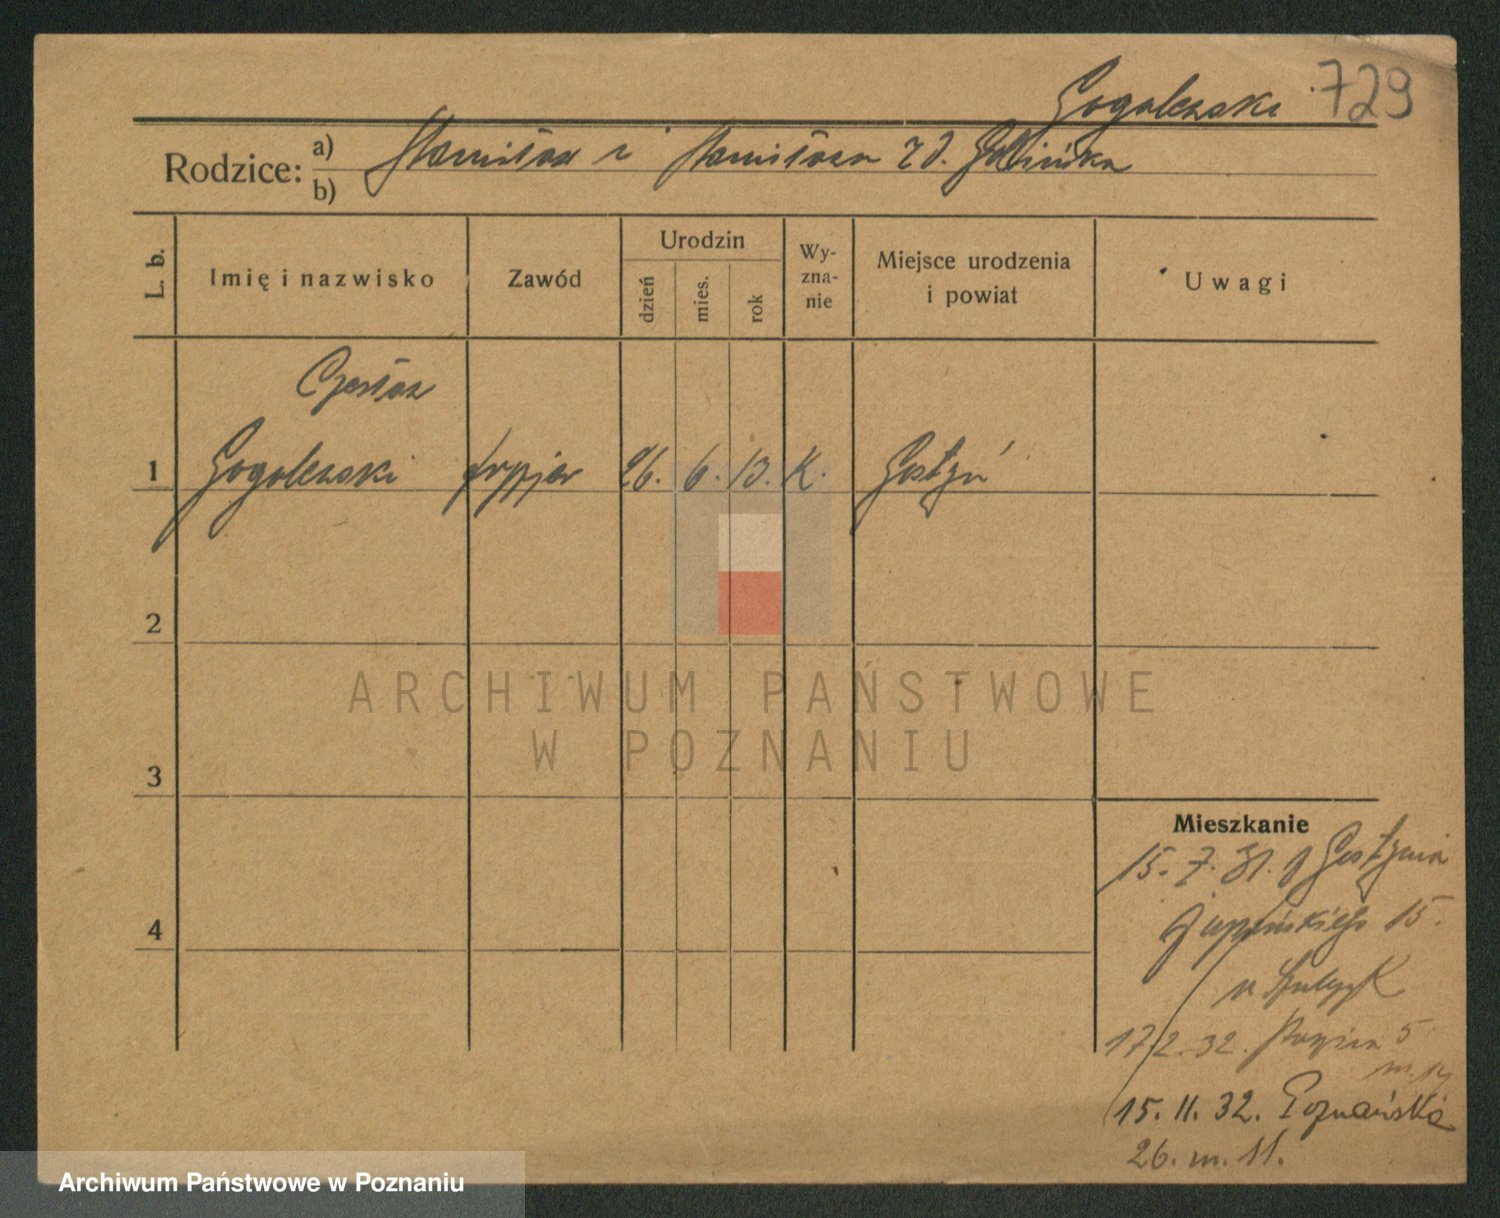 Gogolewski 729
Rodzice: a) b) Stanisław i Stanisława zd.
L. b. Imię i nazwisko Zawód Urodzin dzień mies. rok Wy-zna-nie Miejsce urodzenia i powiat Uwagi
Czesław
1 Gogolewski fryzjer 26. 6. 13. K. Gostyń
2
ARCHIWUM PAŃSTWOWE
W POZNANIU
3
Mieszkanie
15. 7. 31. z Gostynia
15.
4
u
17/2. 32. 5
m. 14
15. 11. 32. Poznańska
26. m. 11.
Archiwum Państwowe w Poznaniu